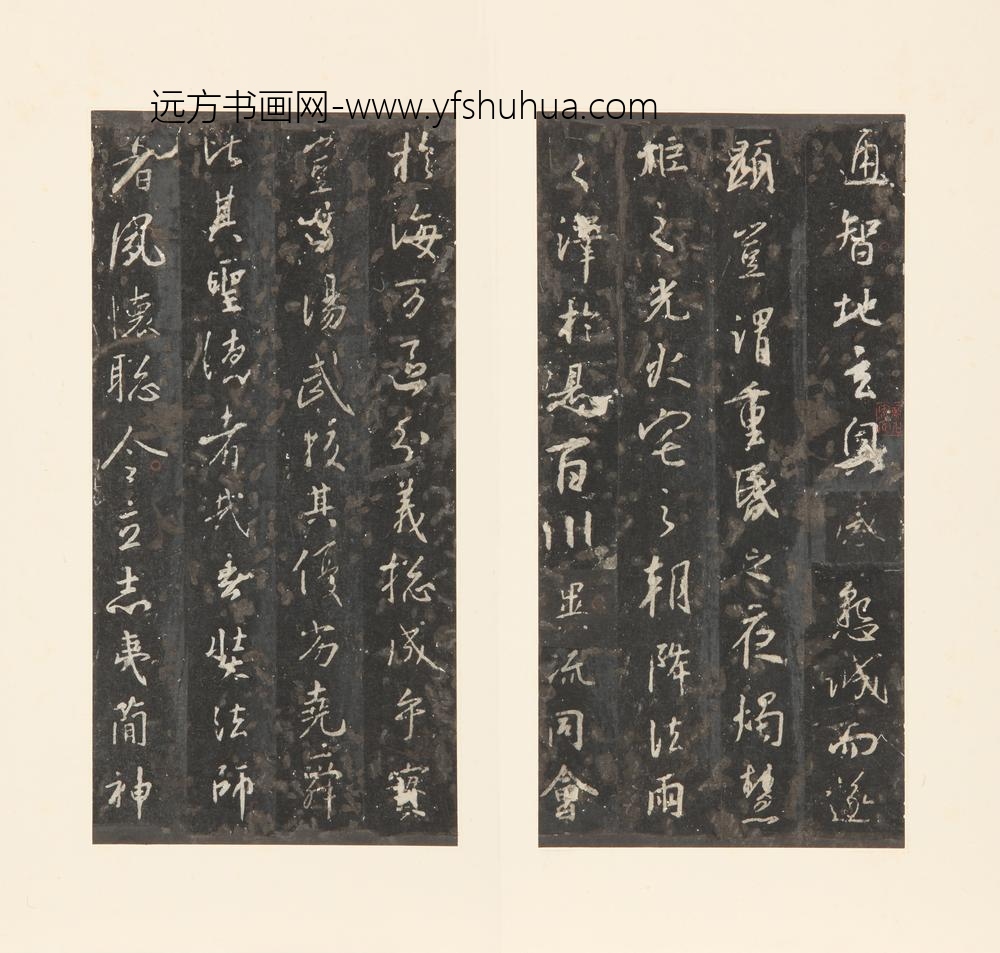 远方书画网-www.yfshuhua.com
通智地玄奧感懇誠而遂
顯豈謂重昬之夜燭慧
炬之光火宅之朝降法雨
之澤於是百川異流同會
於海万區分義揔成乎實
豈與湯武校其優劣堯舜
比其聖德者哉玄奘法師
者夙懷聰令立志夷簡神